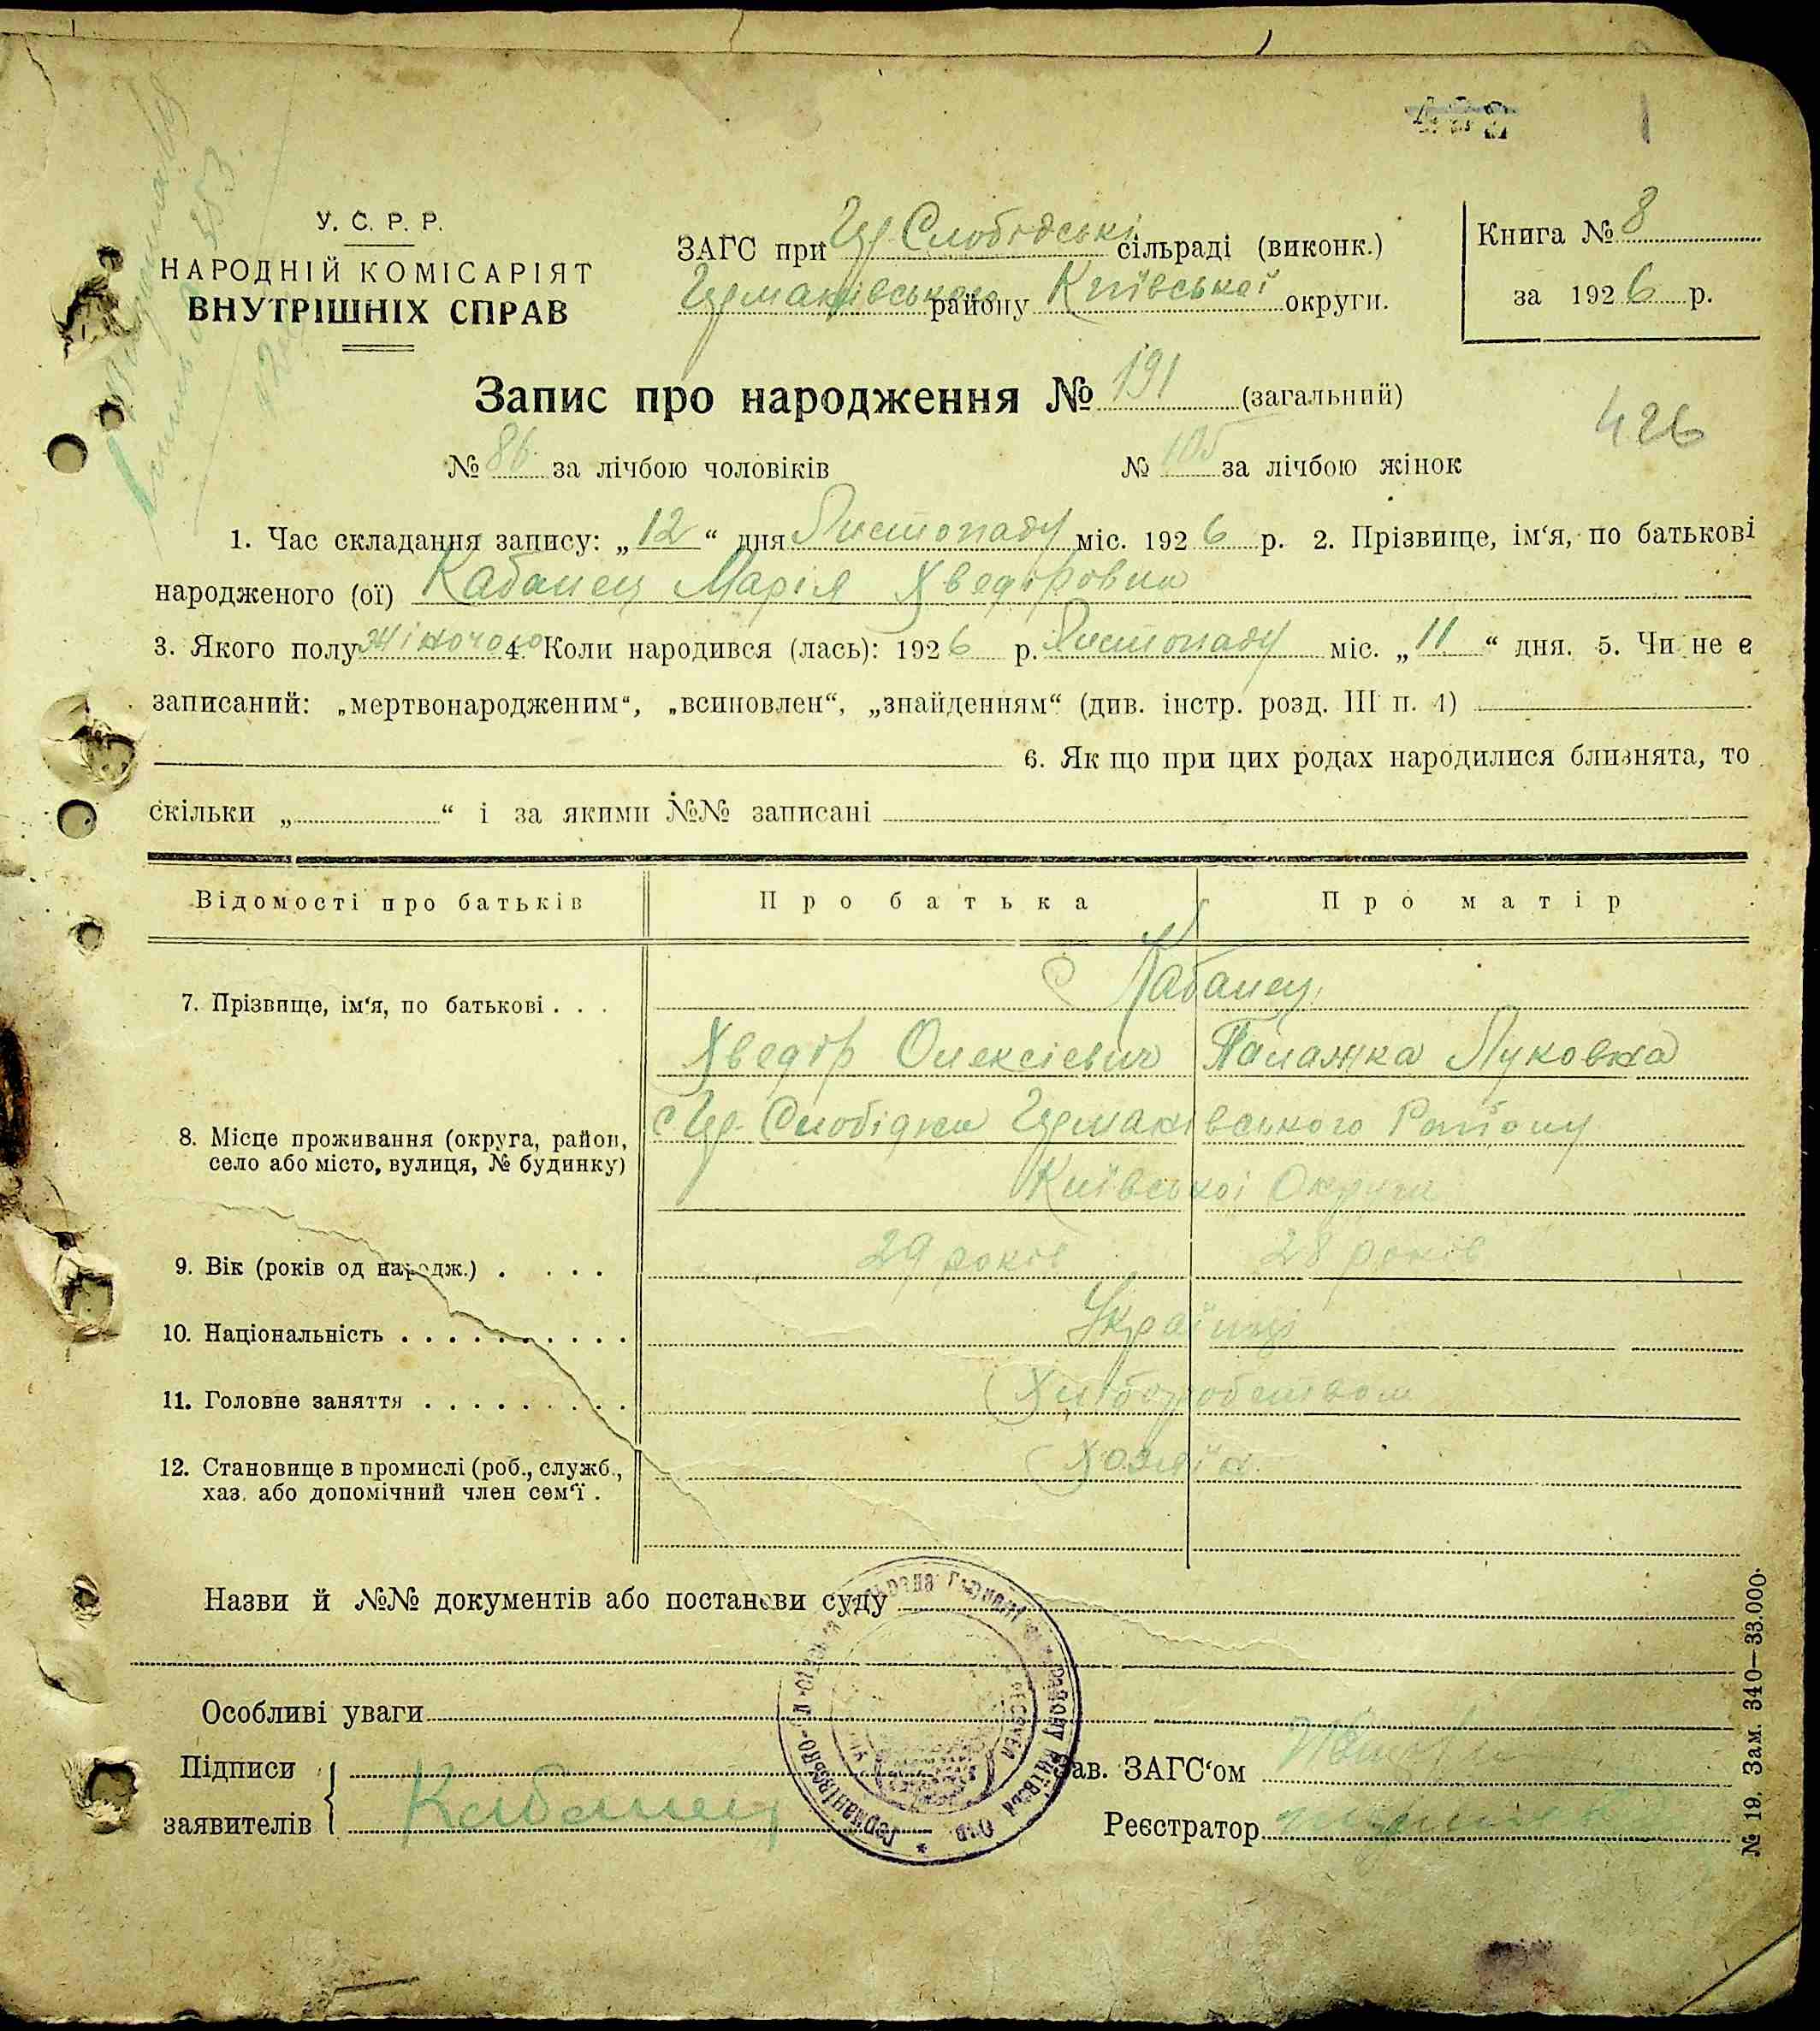 1
У. С. Р. Р.
НАРОДНІЙ КОМІСАРІЯТ
ВНУТРІШНІХ СПРАВ
ЗАГС при Гер Слободські сільраді (виконк.)
Германівського району Київської округи.
Книга № 8
за 1926 р.
Запис про народження № 191 (загальний)
426
№ 86 за лічбою чоловіків № 105 за лічбою жінок
1. Час складання запису: „12“ дня Листопаду міс. 1926 р. 2. Прізвище, ім‘я, по батькові
народженого (ої) Кабанец Марія Хведоровна
3. Якого полу Жіночого 4. Коли народився (лась): 1926 р. Листопаду міс. „11“ дня. 5. Чи не є
записаний: „мертвонародженим“, „всиновлен“, „знайденням“ (див. інстр. розд. III п. 4)
6. Як що при цих родах народилися близнята, то
скільки „ “ і за якими №№ записані
Відомості про батьків Про батька Про матір
7. Прізвище, ім‘я, по батькові . . . Кабанец
Хведір Олексієвич Палажка Луковна
8. Місце проживання (округа, район, село або місто, вулиця, № будинку) с Гер Слобідка Германівського Району
Київської Округи
9. Вік (років од народж.) . . . . 29 років 28 років
10. Національність . . . . . . . . . . Українці
11. Головне заняття . . . . . . . . . Хліборобством
12. Становище в промислі (роб., служб., хаз. або допомічний член сем‘ї . Хазяїн
Назви й №№ документів або постанови суду
Особливі уваги
Підписи
заявителів Кабанец
Зав. ЗАГС‘ом
Реєстратор
№ 19. Зам. 340—33.000.